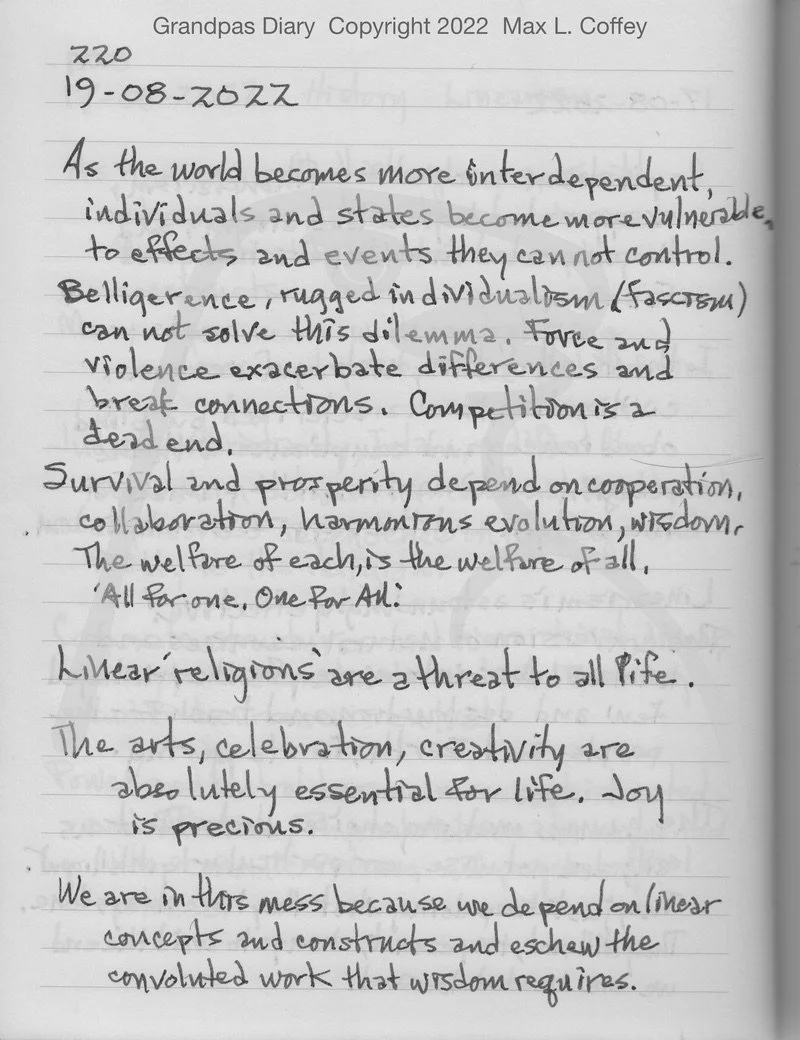 Grandpas Diary Copyright 2022 Max L. Coffey
220
19-08-2022
As the world becomes more interdependent,
individuals and states become more vulnerable,
to effects and events they can not control.
Belligerence, rugged individualism (fascism)
can not solve this dilemma. Force and
violence exacerbate differences and
break connections. Competition is a
dead end.
Survival and prosperity depend on cooperation,
collaboration, harmonious evolution, wisdom.
The welfare of each, is the welfare of all.
'All for one. One for All.'
Linear 'religions' are a threat to all life.
The arts, celebration, creativity are
absolutely essential for life. Joy
is precious.
We are in this mess because we depend on linear
concepts and constructs and eschew the
convoluted work that wisdom requires.